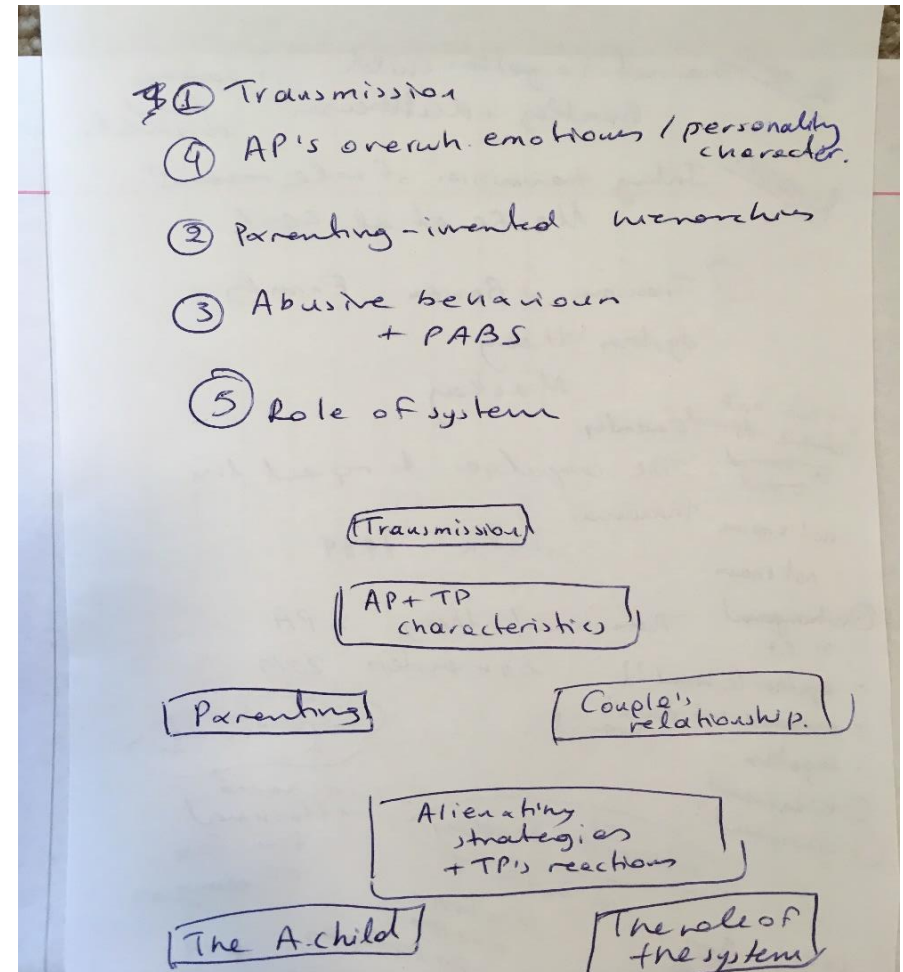 ① Transmission
④ AP's overwh. emotions / personality
character.
② Parenting-invented hierarchies
③ Abusive behaviour
+ PABS
⑤ Role of system
Transmission
AP + TP
characteristics
Parenting
Couple's
relationship.
Alienating
strategies
+ TP's reactions
The A.child
The role of
the system